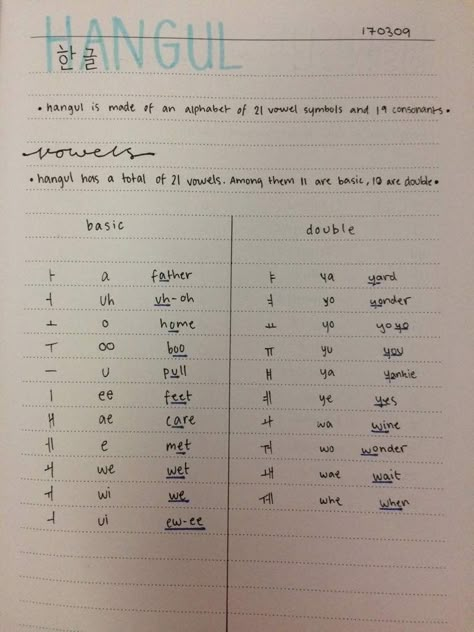 HANGUL
한글
170309
• hangul is made of an alphabet of 21 vowel symbols and 19 consonants •
vowels
• hangul has a total of 21 vowels. Among them 11 are basic, 10 are double •
basic double
ㅏ a father ㅑ ya yard
ㅓ uh uh-oh ㅕ yo yonder
ㅗ o home ㅛ yo yoyo
ㅜ oo boo ㅠ yu you
ㅡ u pull ㅒ ya yankie
ㅣ ee feet ㅖ ye yes
ㅐ ae care ㅘ wa wine
ㅔ e met ㅝ wo wonder
ㅚ we wet ㅙ wae wait
ㅟ wi we ㅞ whe when
ㅢ ui ew-ee